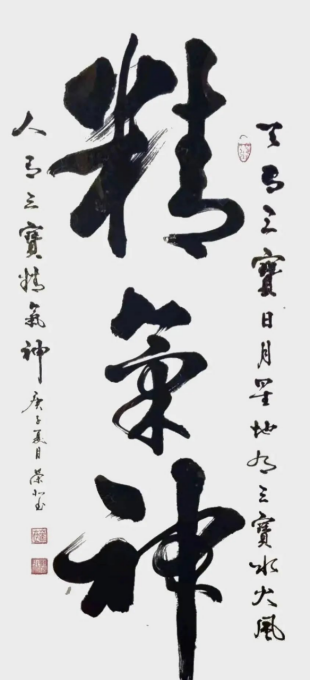 天有三寶日月星地有三寶水火風
精氣神
人有三寶精氣神
庚子夏月